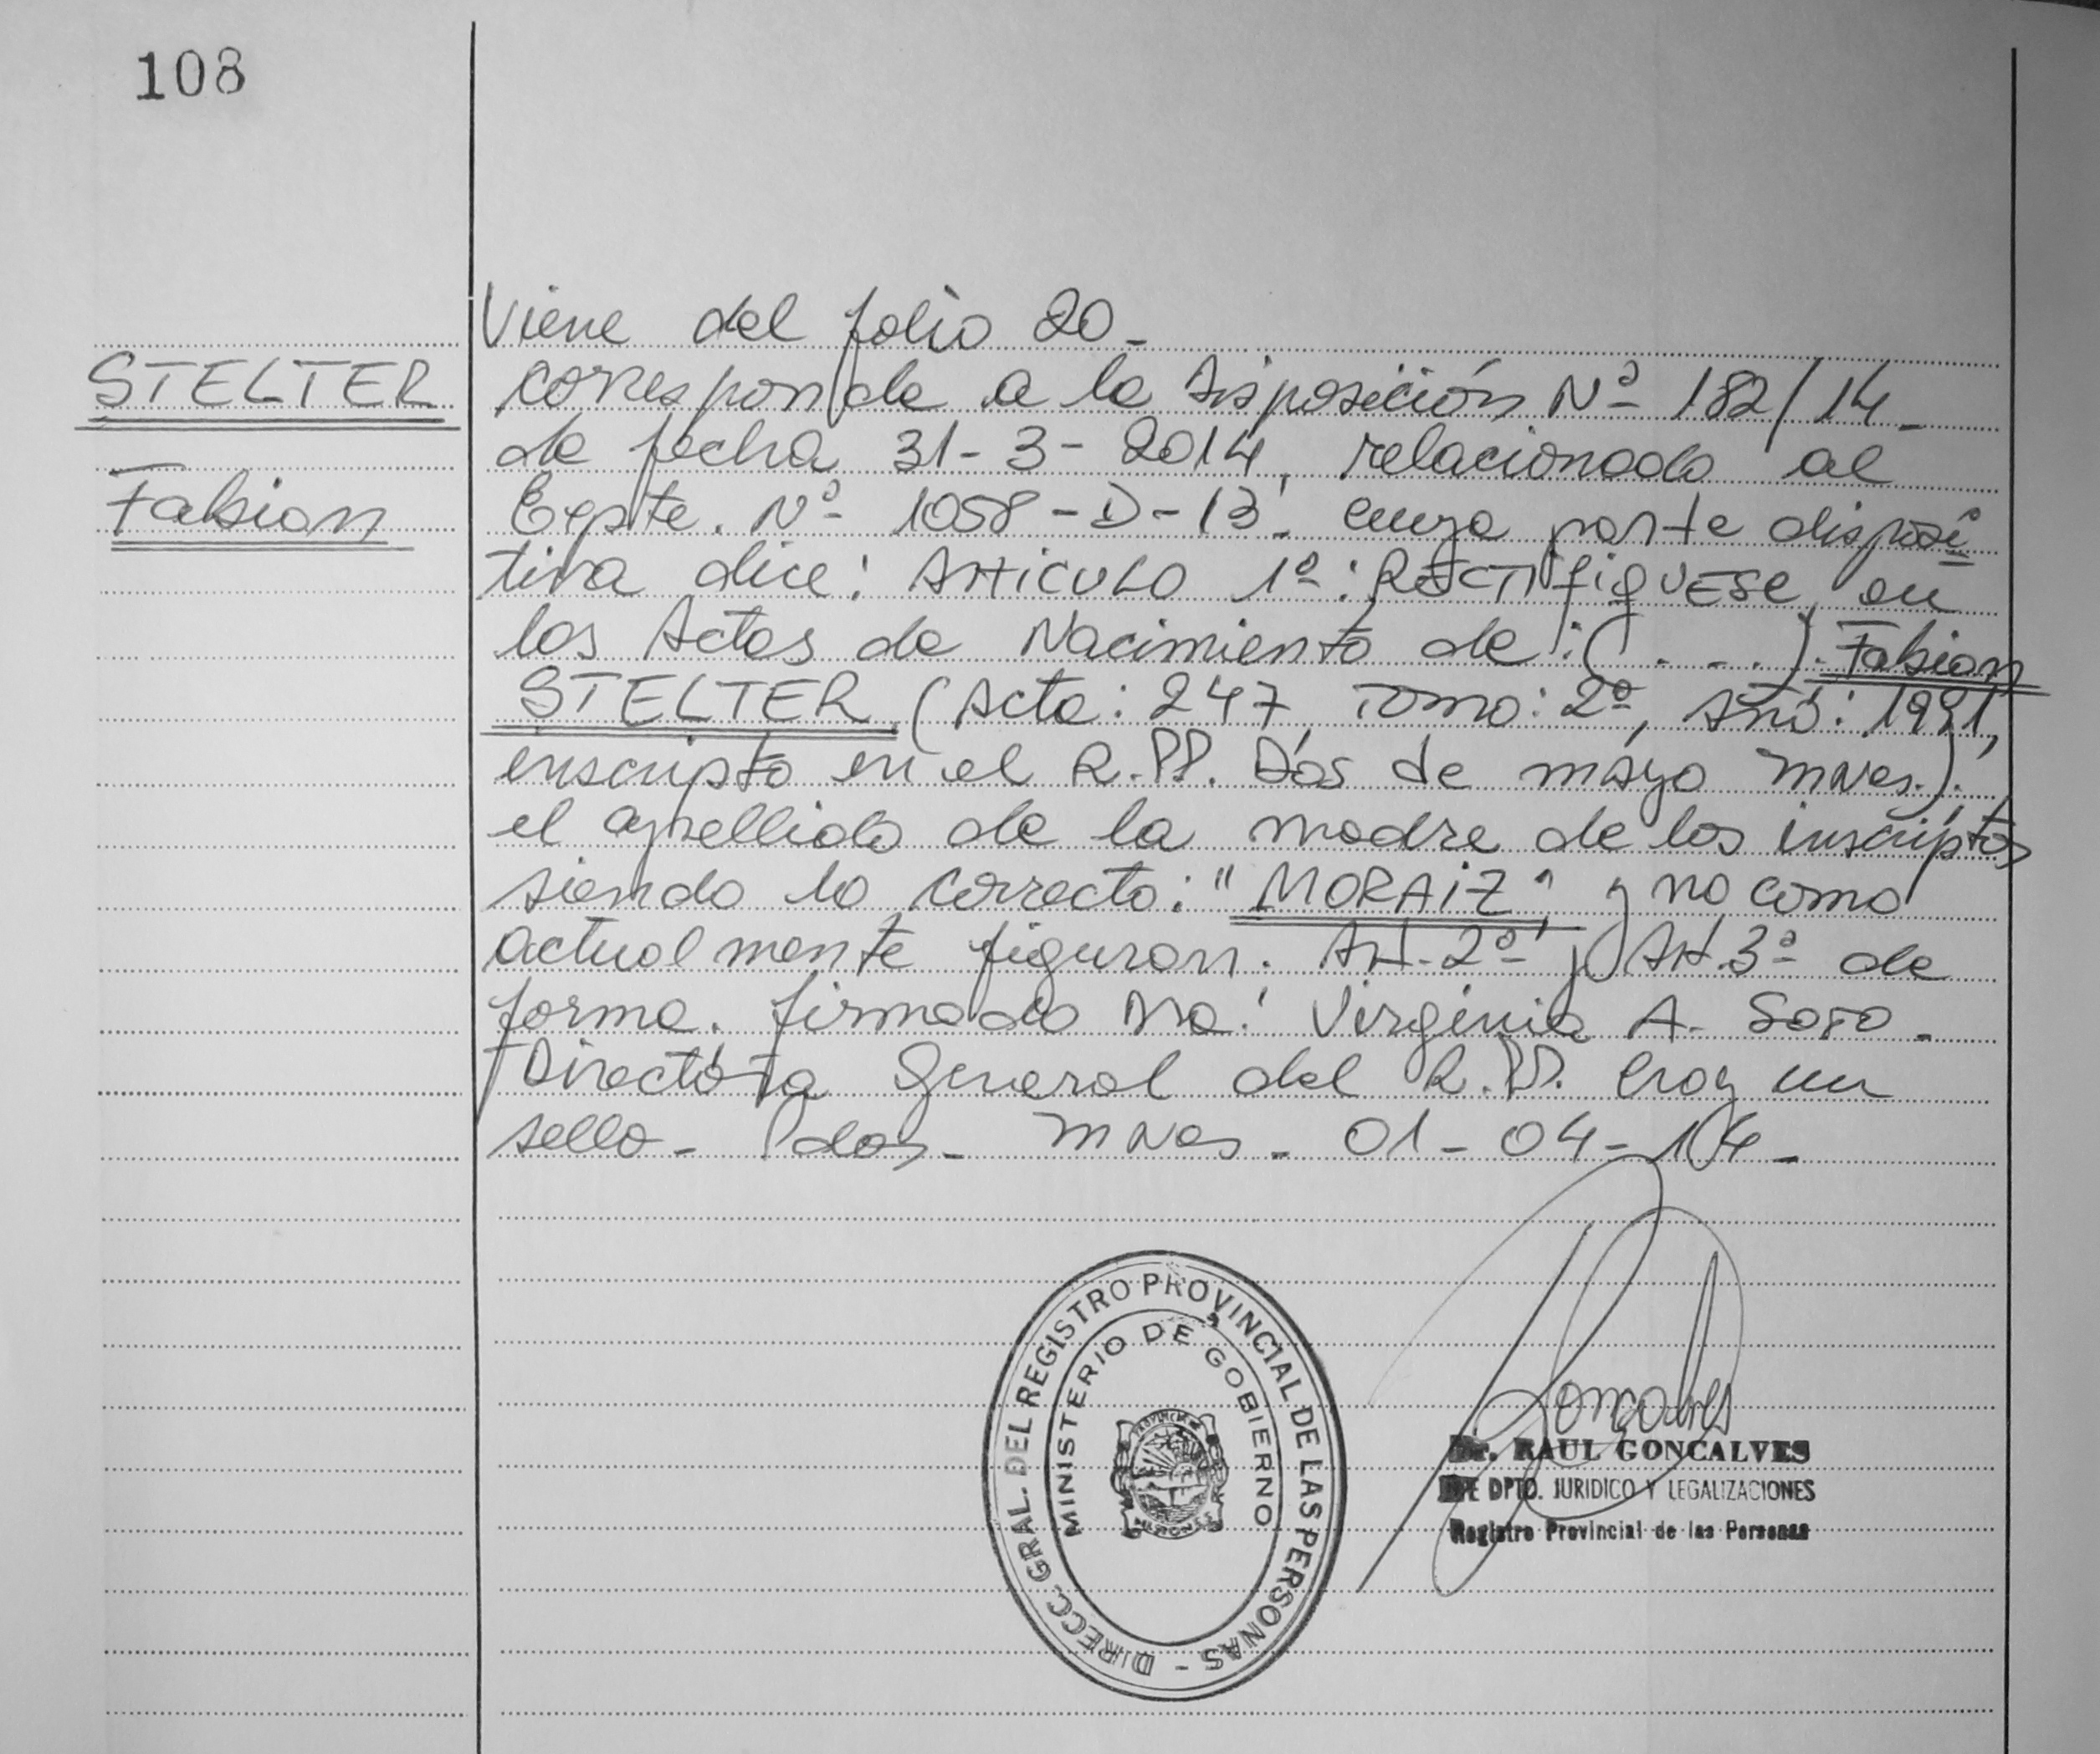 108
Viene del folio 20-
STELTER
corresponde a la Disposición Nº 182/14-
de fecha 31-3-2014, relacionado al
Fabian
Expte. Nº 1058-D-13. cuya parte disposi
tiva dice: ARTICULO 1º: RECTifiqUESE, en
los Actas de Nacimiento de: (. . .). Fabian
STELTER (Acta: 247, Tomo: 2º, Año: 1991,
inscripto en el R.PP. Dos de mayo mnes.).
el apellido de la madre de los inscriptos
siendo lo correcto: "MORAiZ", y no como
actualmente figuran. Art. 2º y Art. 3º de
forma. firmado Ma. Virginia A. Soto.
Directora General del R.PP. Hay un
sello- Pdas- mnes- 01-04-14-
DIRECC. GRAL. DEL REGISTRO PROVINCIAL DE LAS PERSONAS -
MINISTERIO DE GOBIERNO
PROVINCIA DE
MISIONES
Goncalves
Dr. RAUL GONCALVES
JEFE DPTO. JURIDICO Y LEGALIZACIONES
Registro Provincial de las Personas